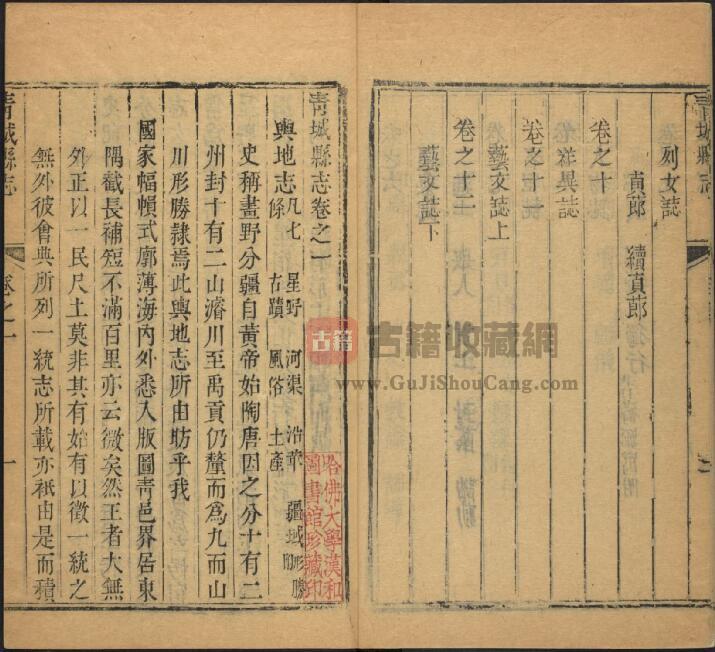 青城縣志
列女誌
貞節　續貞節
卷之十
祥異誌
卷之十一
藝文誌上
卷之十二
藝文誌下
青城縣志卷之一
輿地志凡七條　星野　河渠　沿革　疆域形勝　古蹟　風俗　土產
史稱畫野分疆自黃帝始陶唐因之分十有二
州封十有二山濬川至禹貢仍釐而爲九而山
川形勝隸焉此輿地志所由昉乎我
國家幅幀式廓薄海內外悉入版圖青邑界居東
隅截長補短不滿百里亦云微矣然王者大無
外正以一民尺土莫非其有始有以徵一統之
無外彼會典所列一統志所載亦祇由是而積
青城縣志
卷之一
一
哈佛大學漢和圖書館珍藏印
古籍
古籍收藏網
www.GuJiShouCang.com